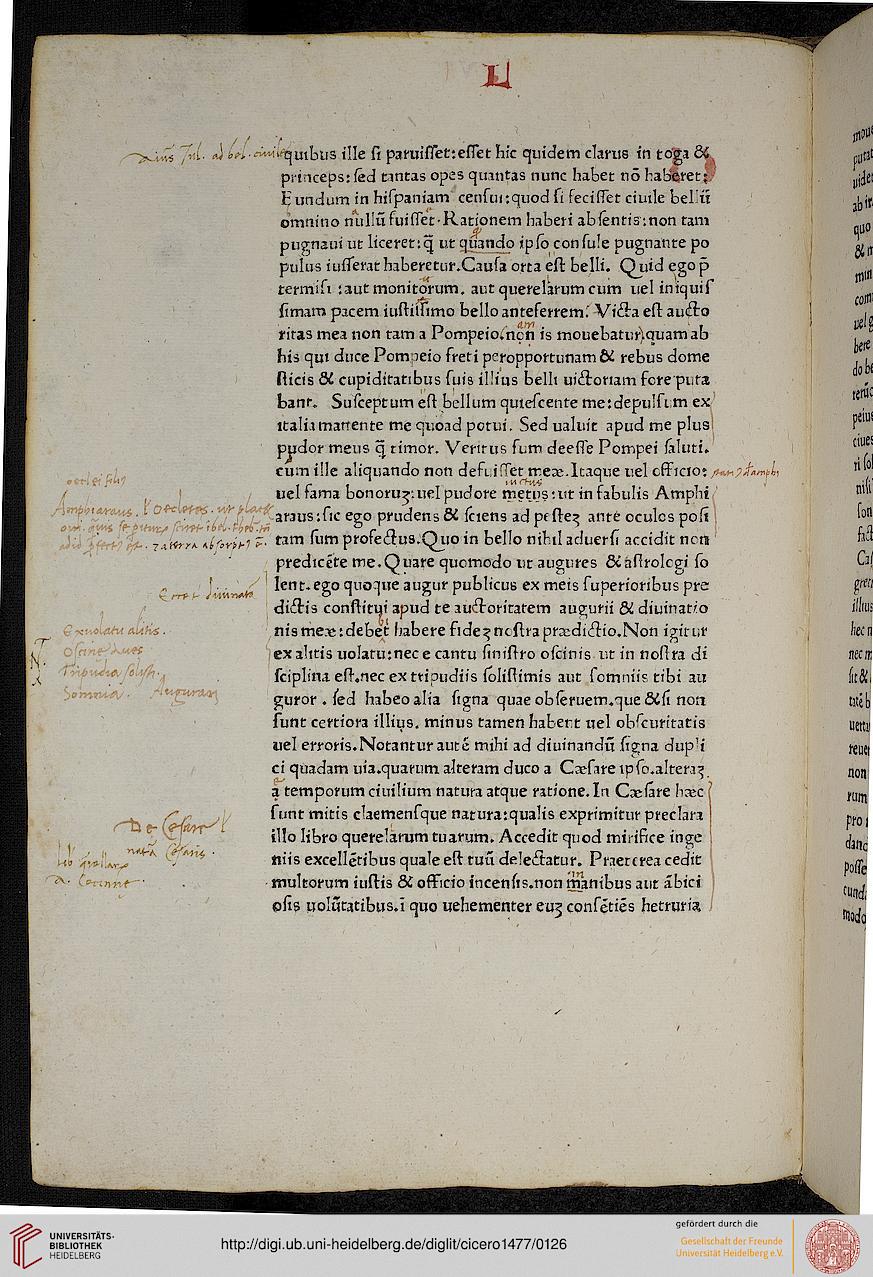 L
quibus ille si paruisset: esset hic quidem clarus in toga &
princeps: sed tantas opes quantas nunc habet nō haberet:
Eundum in hispaniam censui: quod si fecisset ciuile bellū
omnino nullū fuisset. Rationem haberi absentis: non tam
pugnaui ut liceret: q̄ ut quando ipso consule pugnante po
pulus iusserat haberetur. Causa orta est belli. Quid ego p̄
termisi : aut monitorum. aut querelarum cum uel iniquis
simam pacem iustissimo bello anteferrem. Victa est aucto
ritas mea non tam a Pompeio. non is mouebatur. quam ab
his qui duce Pompeio freti peropportunam & rebus dome
sticis & cupiditatibus suis illius belli uictoriam fore puta
bant. Susceptum est bellum quiescente me: depulsum ex
italia manente me quoad potui. Sed ualuit apud me plus
pudor meus q̄ timor. Veritus sum deesse Pompei saluti.
cum ille aliquando non defuisset meæ. Itaque uel officio:
uel fama bonoruꝫ: uel pudore metus: ut in fabulis Amphi
araus: sic ego prudens & sciens ad pesteꝫ ante oculos posi
tam sum profectus. Quo in bello nihil aduersi accidit non
predicēte me. Quare quomodo ut augures & astrologi so
lent. ego quoque augur publicus ex meis superioribus pre
dictis constitui apud te auctoritatem augurii & diuinatio
nis meæ: debet habere fideꝫ nostra prædictio. Non igitur
ex alitis uolatu: nec e cantu sinistro oscinis. ut in nostra di
sciplina est. nec ex tripudiis solistimis aut somniis tibi au
guror . sed habeo alia signa quae obseruem. que & si non
sunt certiora illius. minus tamen habent uel obscuritatis
uel erroris. Notantur autē mihi ad diuinandū signa dupli
ci quadam uia. quarum alteram duco a Cæsare ipso. alteraꝫ
a temporum ciuilium natura atque ratione. In Cæsare hæc
sunt mitis claemensque natura: qualis exprimitur preclara
illo libro querelarum tuarum. Accedit quod mirifice inge
niis excellētibus quale est tuū delectatur. Praeterea cedit
multorum iustis & officio incensis. non manibus aut ābici
osis uolūtatibus. ī quo uehementer euꝫ consētiēs hetruria
Amphiaraus.
Ex uolatu alitis.
Oscines aues
Tripudia solist.
Somnia.
De Cesare
natā Cesaris.
a. Cecinne.
UNIVERSITÄTS-
BIBLIOTHEK
HEIDELBERG
http://digi.ub.uni-heidelberg.de/diglit/cicero1477/0126
gefördert durch die
Gesellschaft der Freunde
Universität Heidelberg e.V.